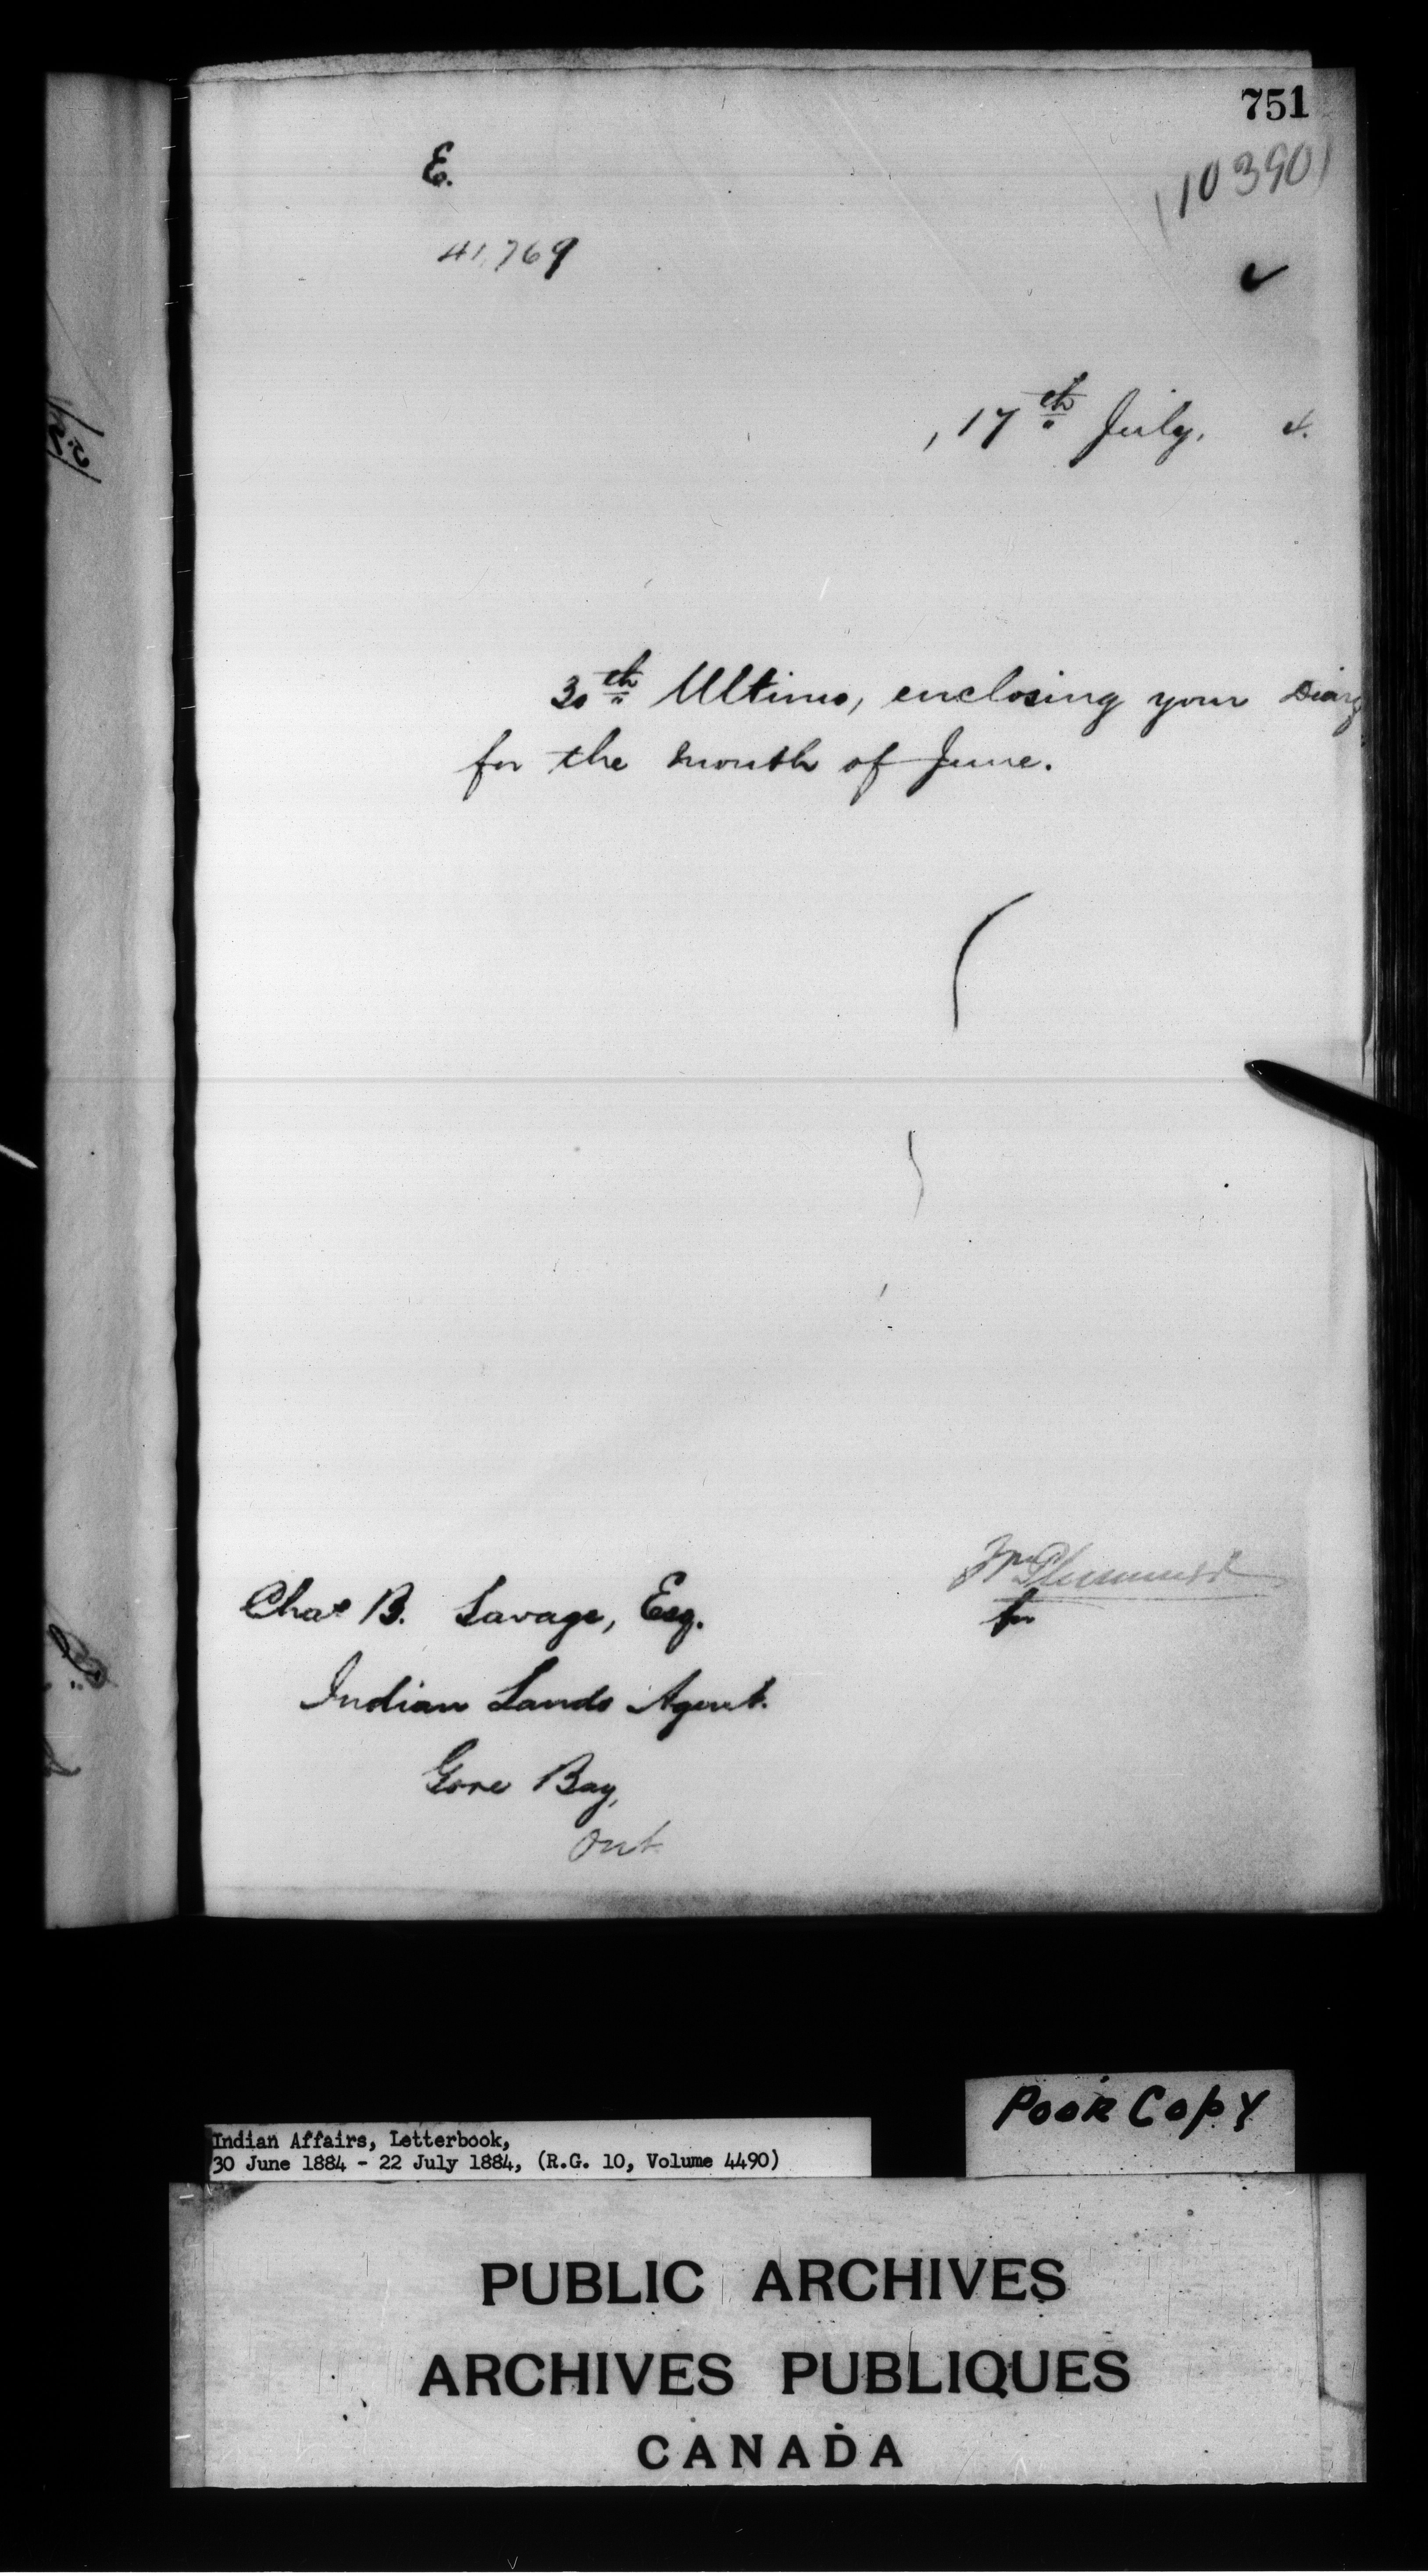 751
(10390)
E.
41,769
, 17th July, 4.
30th Ultimo, enclosing your Diary
for the month of June.
Wm Plummer
for
Chas B. Savage, Esq.
Indian Lands Agent.
Gore Bay,
Ont
Poor Copy
Indian Affairs, Letterbook,
30 June 1884 - 22 July 1884, (R.G. 10, Volume 4490)
PUBLIC ARCHIVES
ARCHIVES PUBLIQUES
CANADA